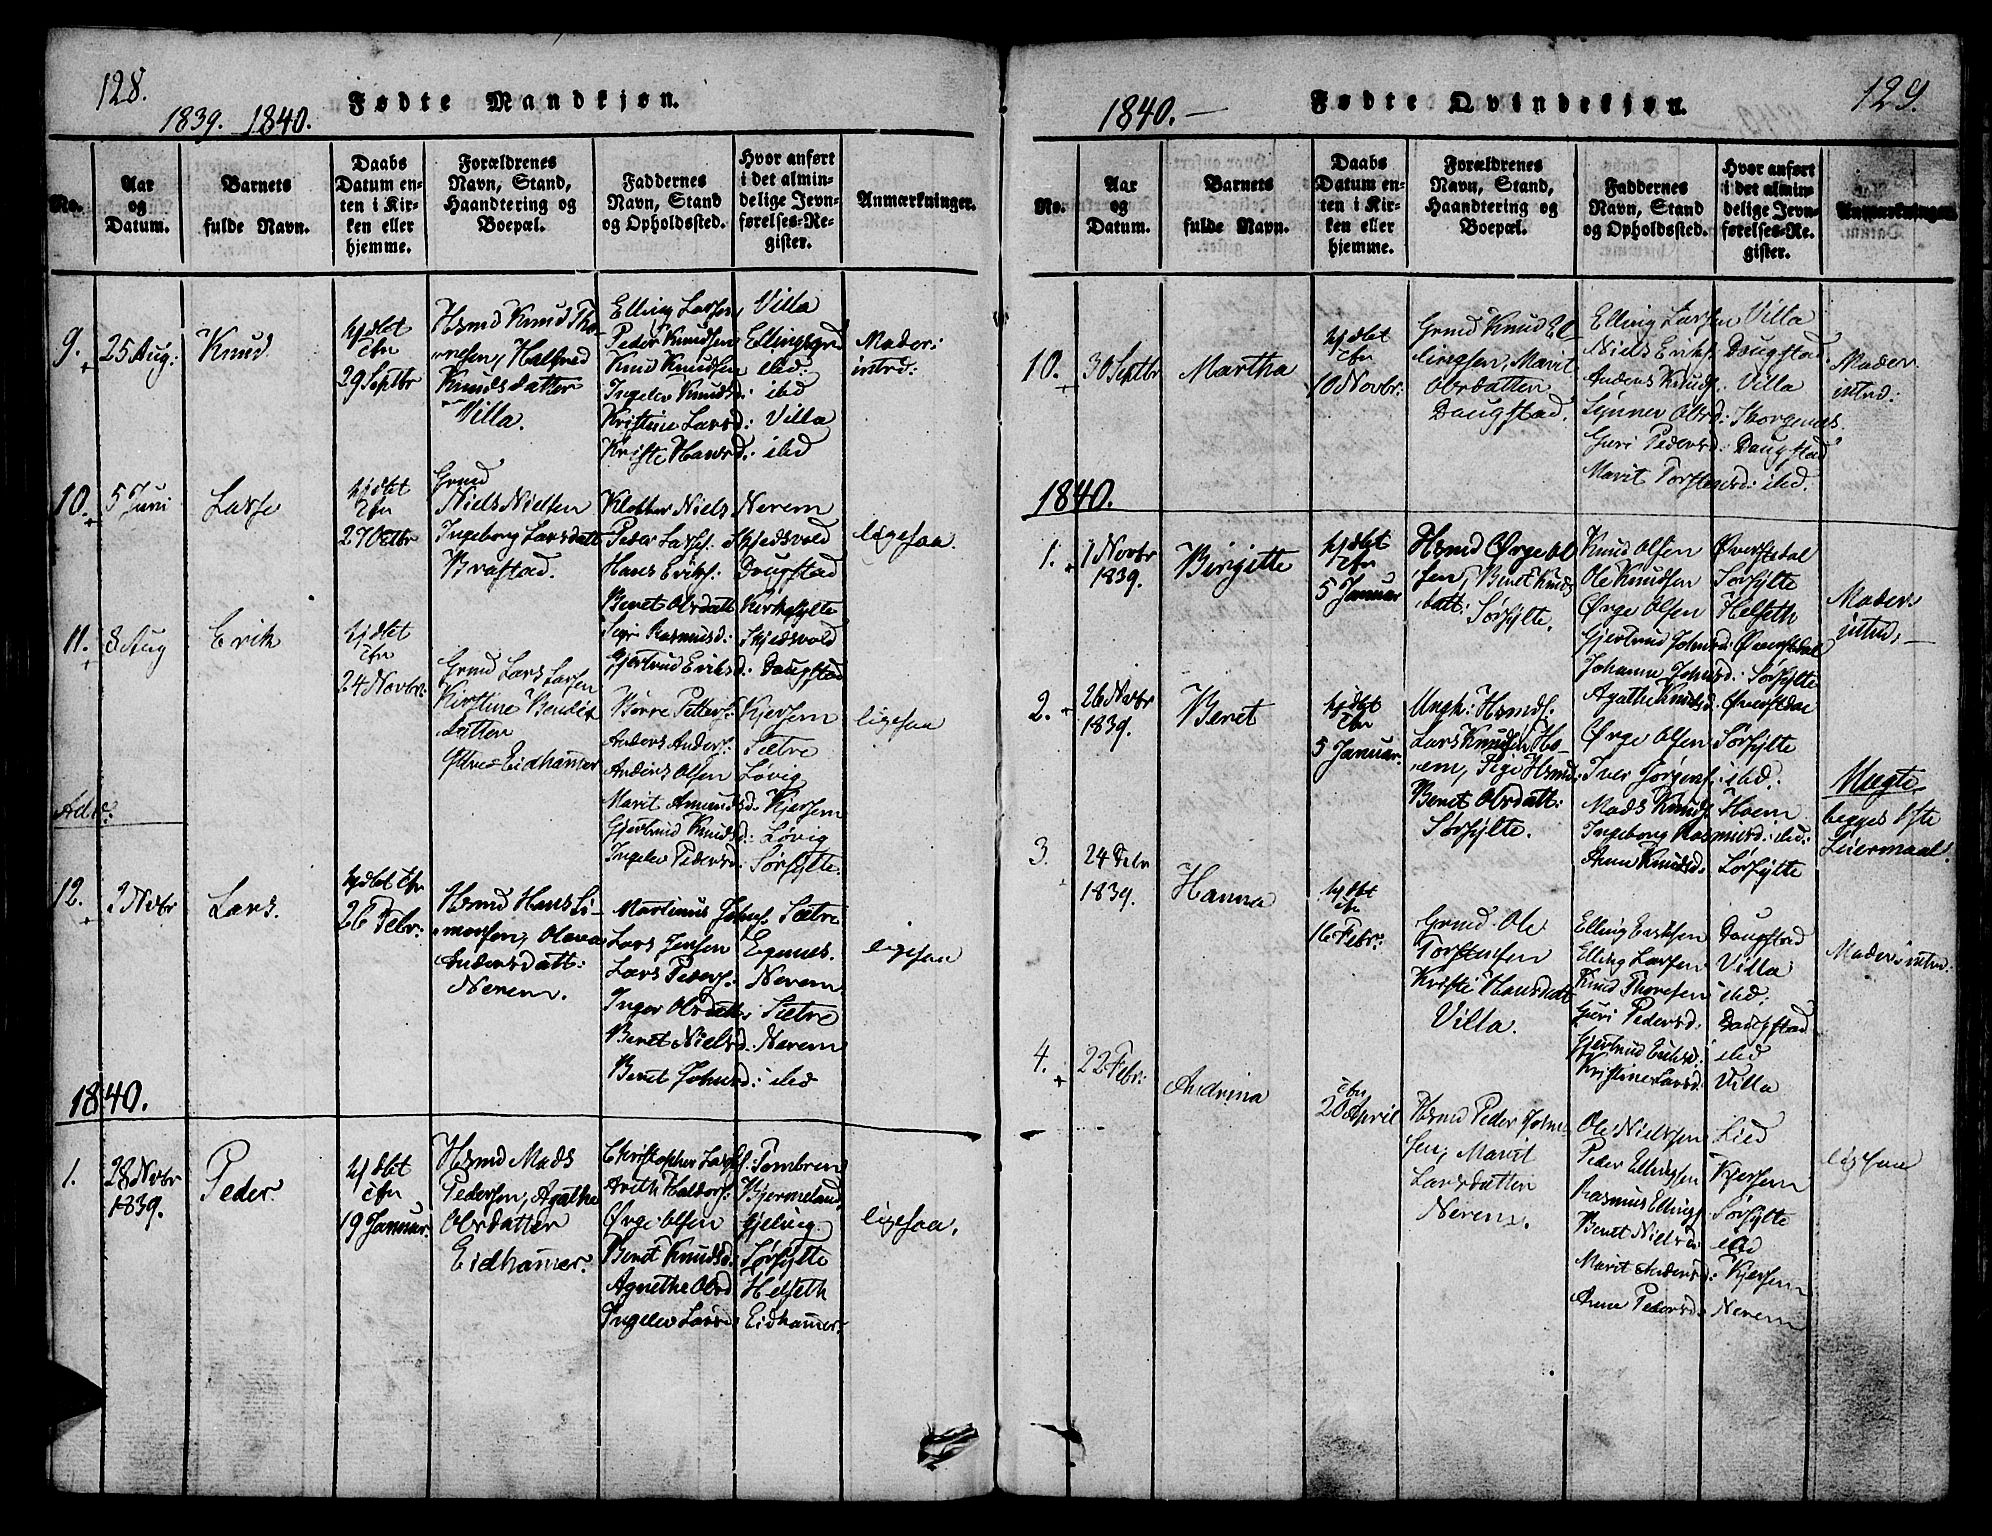 128.
Fødte Mandkjøn.
1839. 1840.
No.
Aar
og
Datum.
Barnets
fulde Navn.
Daabs
Datum en-
ten i Kir-
ken eller
hjemme.
Forældrenes
Navn, Stand,
Haandtering og
Boepæl.
Faddernes
Navn, Stand
og Opholdssted.
Hvor anført
i det almin-
delige Jevn-
førelses-Re-
gister.
Anmærkninger.
9.
25 Aug:
Knud
hjdbt
Cfn
29 Septbr
Hsmd Knud Tho-
resen, Halfred
Knudsdatter
Villa.
Elling Larsen Villa
Peder Knudsen Ellingsgrd
Knud Knudsen ibid:
Ingelev Knudsd: ibd
Kristine Larsd: Villa
Kriste Hansd: ibd
Moder:
intrd:
10.
5 Juni
Lasse
hjdbt
Cfn
27 Octbr
Grmd
Niels Nielsen
Ingeborg Larsdatt
Brastad.
Klokker Niels Nerem
Peder Larss: Skjedsvold
Hans Eriks: Dougstad
Beret Olsdatt: Kirkefylte
Sigri Rasmusd: Skjedsvold
Gjertrud Eriksd: Dougstad
ligesaa.
11.
8 Aug
Erik
hjdbt
Cfn
24 Novbr:
Grmd Lars Larsen
Kirstine Bendix
datter
Eidhamer
Børre Petters: Kjersem
Anders Anders: Sætre
Anders Olsen Løvig
Marit Amundsd: Kjersem
Gjertrud Knudsd: Løvig
Ingelev Pedersd: Sørfylte.
ligesaa
12.
2 Novbr
Lars.
hjdbt Cfn
26 Febr:
Hsmd Hans Si-
monsen, Olava
Andersdatt:
Nerem.
Martinus Johns: Sætre
Lars Jensen Egenes.
Lars Peders: Nerem
Inger Olsdatt: Sætre
Beret Nielsd: Nerem
Beret Johnsd: ibd
ligesaa
1840.
1.
28 Novbr
1839.
Peder.
hjdbt
Cfn
19 Januar.
Hsmd Mads
Pedersen, Agathe
Olsdatter
Eidhamer.
Christopher Larss: Tombren
Arith Haldors: Bjermeland
Ørge Olsen Gjeling
Beret Knudsd: Sørfylte
Agnethe Olsd Helseth
Ingelev Larsd: Eidhamer.
ligesaa.
1840.
Fødte Qvindekjøn.
129.
No.
Aar
og
Datum.
Barnets
fulde Navn.
Daabs
Datum en-
ten i Kir-
ken eller
hjemme.
Forældrenes
Navn, Stand,
Haandtering og
Boepæl.
Faddernes
Navn, Stand
og Opholdssted.
Hvor anført
i det almin-
delige Jevn-
førelses-Re-
gister.
Anmærkninger.
10.
30 Septbr
Martha
hjdbt
Cfn
10 Novbr:
Grmd Knud El-
lingsen, Marit
Olsdatter
Dougstad.
Elling Larsen Villa
Niels Eriks: Dougstad
Anders Knuds: Villa
Synner Olsd: Skorgenes
Guri Pedersd: Dougstad
Marit Torstensd: ibd.
Moder
intrd:
1840.
1.
1 Novbr
1839.
Birgitte
hjdbt
Cfn
5 Januar
Hsmd Ørge Ol
sen, Beret Knds
datt: Sørfylte.
Knud Olsen Øverstedal
Ole Knudsen Sørfylte
Ørge Olsen Helseth
Gjertrud Johnsd: Øverstdal
Johanna Johnsd: Sørfylte
Agathe Knudsd: Øverstdal
Moder
intrd,
2.
26 Novbr
1839.
Beret
hjdbt
Cfn
5 Januar:
Ungk: Hsmds.
Lars Knudsen Ho-
em, Pige Hsmd:
Beret Olsdatt:
Sørfylte.
Ørge Olsen Sørfylte
Iver Jørgens: ibd:
Mads Knuds: Hoem
Ingeborg Rasmusd: ibd:
Anne Knudsd: Sørfylte
Uægte
begges 1ste
Leiermaal.
3.
24 Febr
1839.
Hanna
hjdbt
Cfn
16 Febr:
Grmd Ole
Torstensen
Kristi Hansdatt
Villa.
Elling Eriksen Dougstad
Elling Larsen Villa
Knud Thoresen ibd:
Guri Pedersd: Dougstad
Gjertrud Eriksd: ibd
Kristine Larsd: Villa
Moder intrd:
4.
22 Febr:
Andrina
Cfn
20 April
Hsmd Peder John-
sen, Marit
Larsdatter
Nerem.
Ole Nielsen Lied
Peder Ellingsen Kjersem
Rasmus Ellings Sørfylte
Beret Nielsd: ibd
Marit Andersd: Kjersem
Anne Pedersd: Nerem
ligesaa